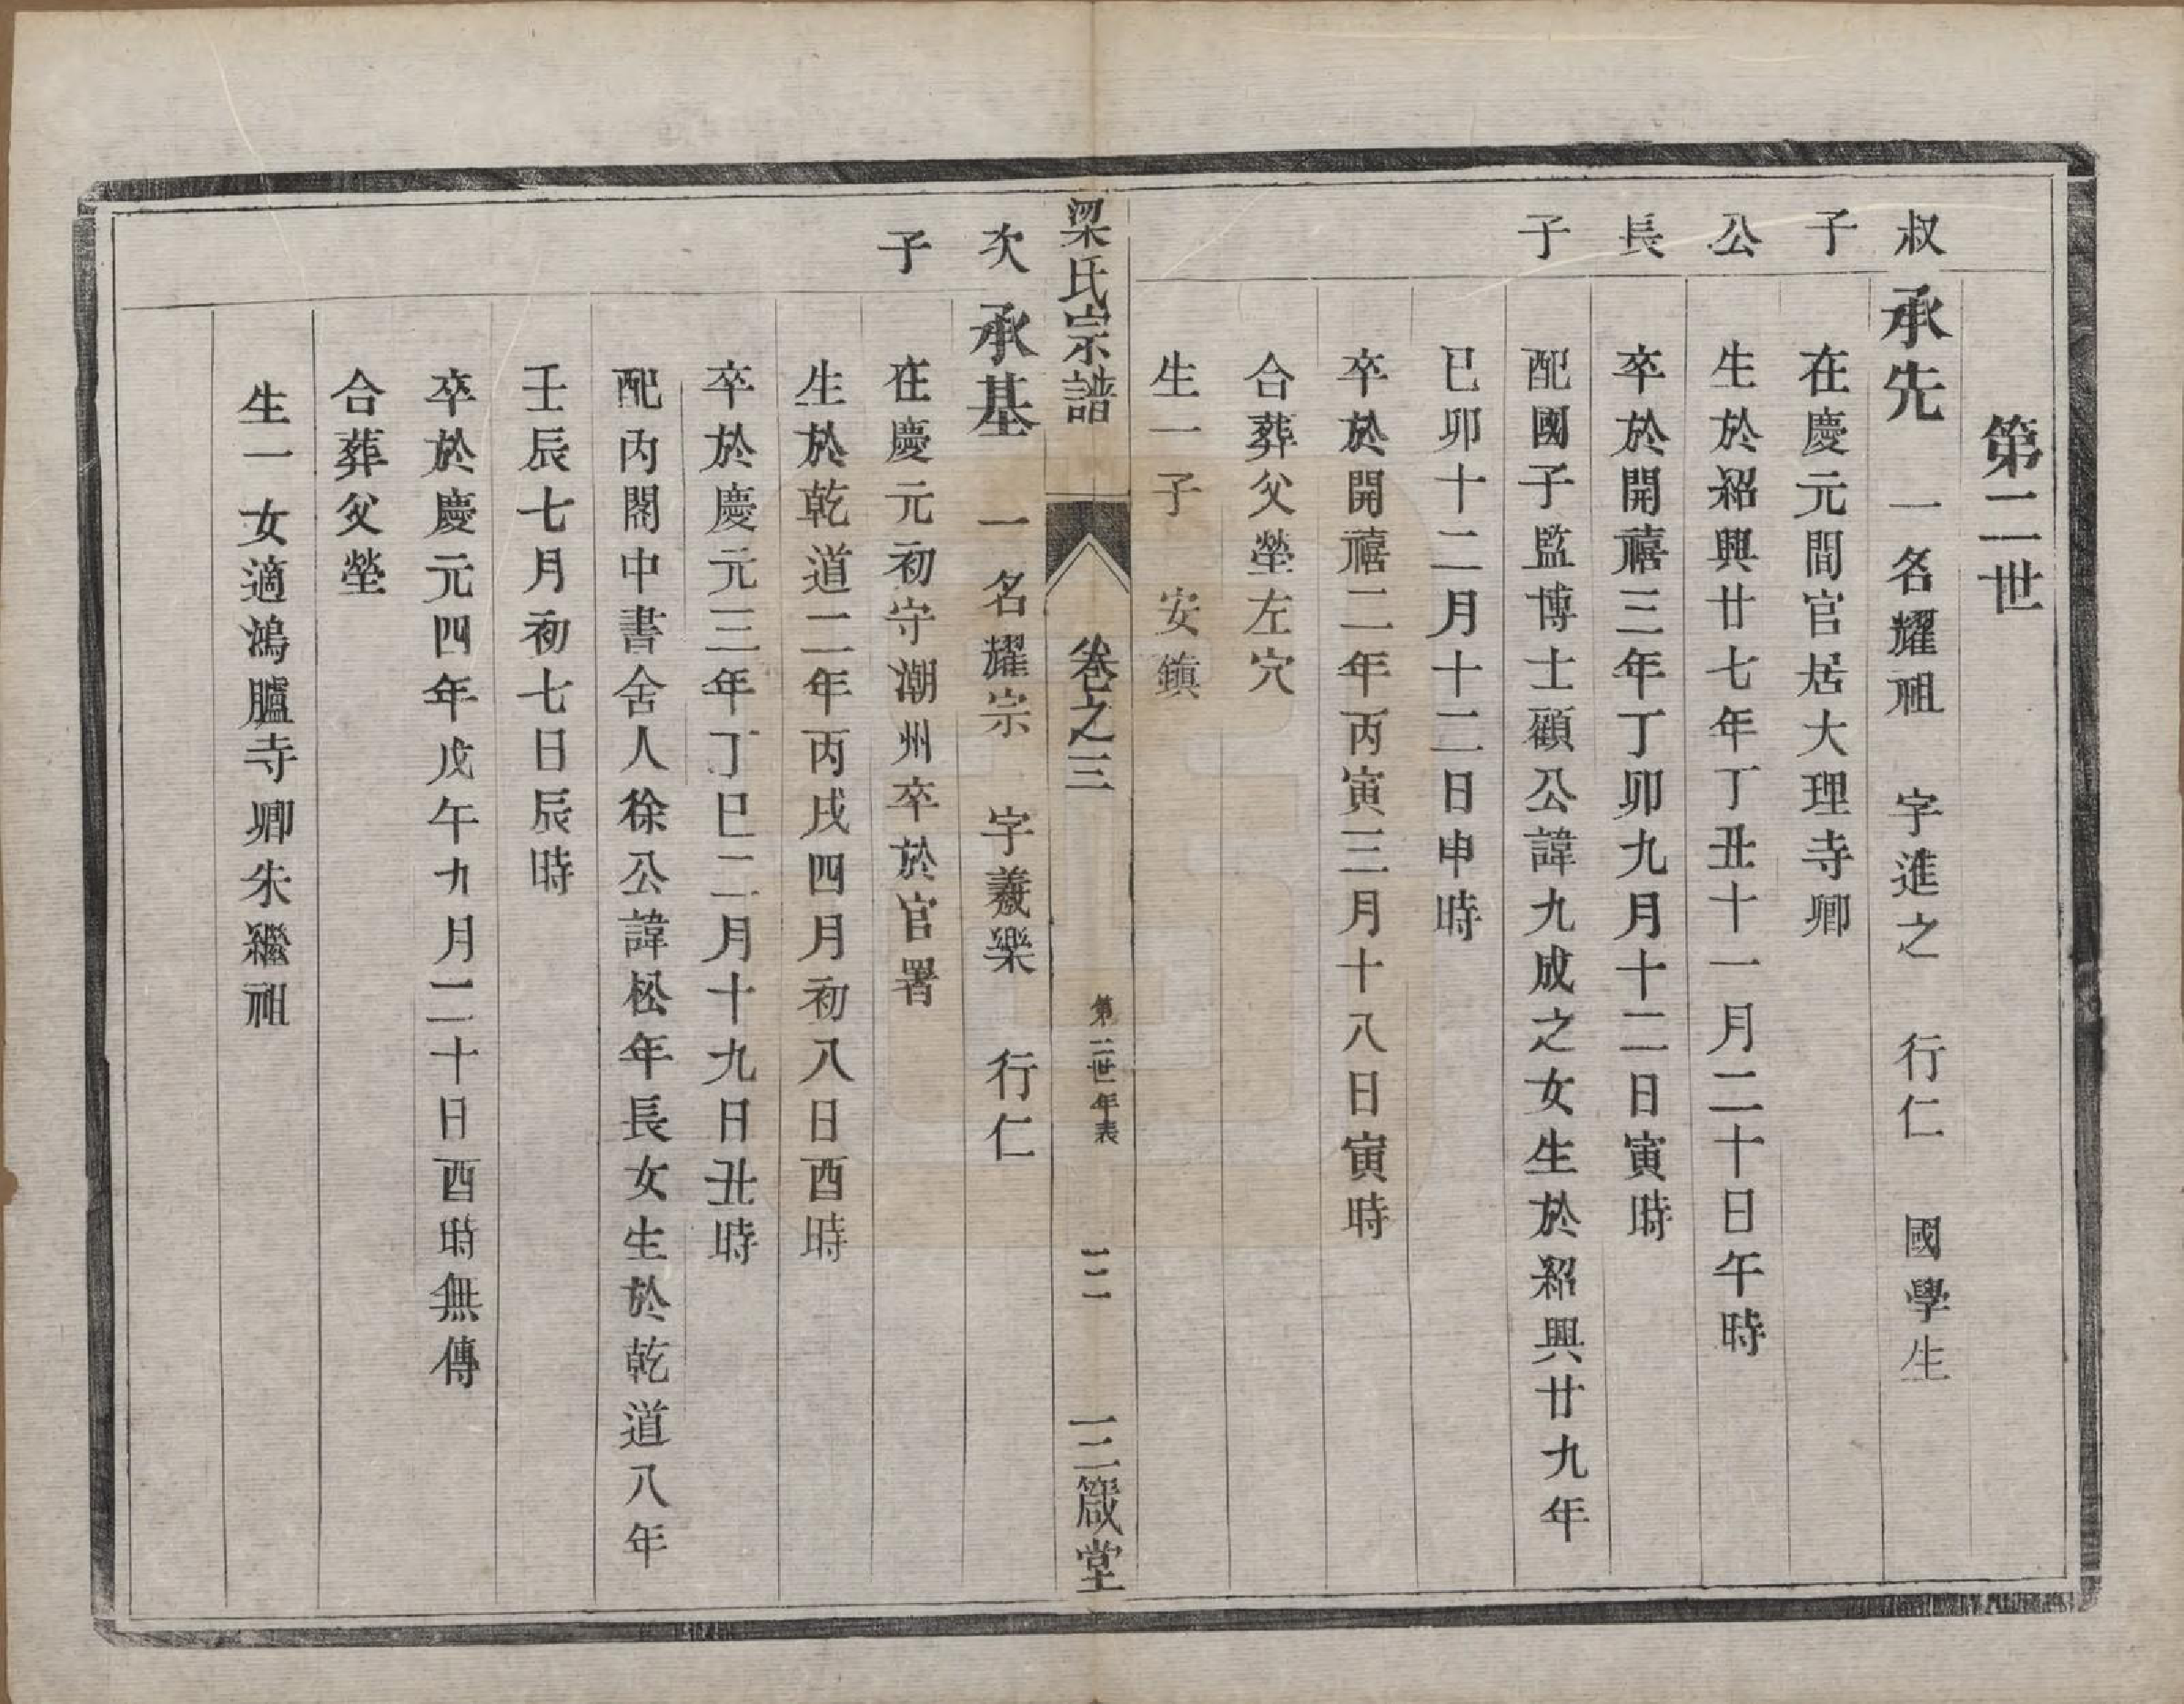 第二世
叔 承先 一名耀祖 字進之 行仁 國學生
子 在慶元間官居大理寺卿
公 生於紹興廿七年丁丑十一月二十日午時
長 卒於開禧三年丁卯九月十二日寅時
子 配國子監博士顧公諱九成之女生於紹興廿九年
已卯十二月十二日申時
卒於開禧二年丙寅三月十八日寅時
合葬父塋左穴
生一子 安鎮
梁氏宗譜 卷之三 第二世年表 二 三箴堂
次 承基 一名耀宗 字羲樂 行仁
子 在慶元初守潮州卒於官署
生於乾道二年丙戌四月初八日酉時
卒於慶元三年丁巳二月十九日丑時
配內閣中書舍人徐公諱松年長女生於乾道八年
壬辰七月初七日辰時
卒於慶元四年戊午九月二十日酉時無傳
合葬父塋
生一女適鴻臚寺卿朱繼祖